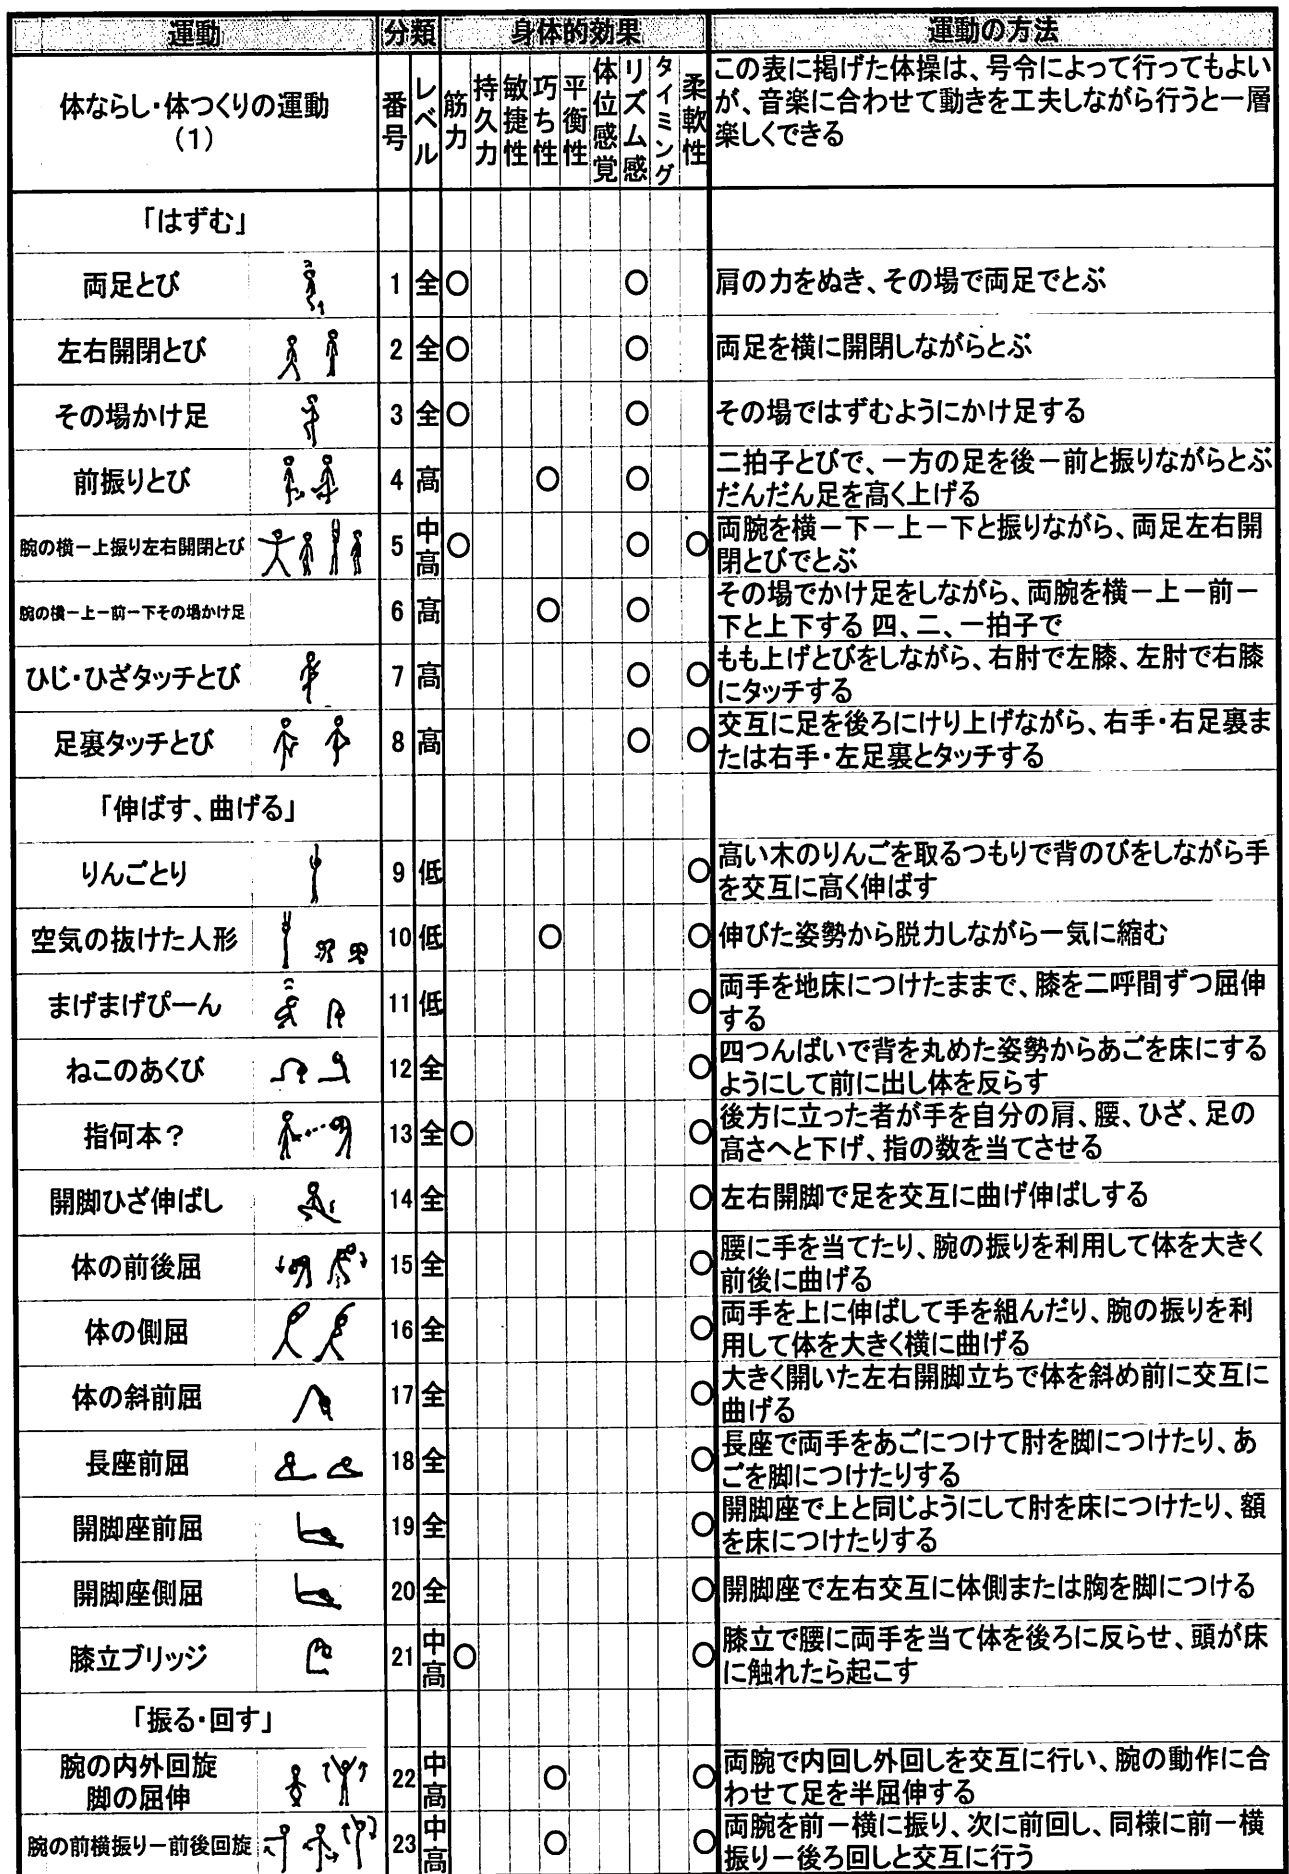 運動 分類 身体的効果 運動の方法
体ならし・体つくりの運動
(1)
番号 レベル 筋力 持久力 敏捷性 巧ち性 平衡性 体位感覚 リズム感 タイミング 柔軟性
この表に掲げた体操は、号令によって行ってもよい
が、音楽に合わせて動きを工夫しながら行うと一層
楽しくできる
「はずむ」
両足とび 1 全 ○ ○ 肩の力をぬき、その場で両足でとぶ
左右開閉とび 2 全 ○ ○ 両足を横に開閉しながらとぶ
その場かけ足 3 全 ○ ○ その場ではずむようにかけ足する
前振りとび 4 高 ○ ○ 二拍子とびで、一方の足を後ー前と振りながらとぶ
だんだん足を高く上げる
腕の横ー上振り左右開閉とび 5 中高 ○ ○ ○ 両腕を横ー下ー上ー下と振りながら、両足左右開
閉とびでとぶ
腕の横ー上ー前ー下その場かけ足 6 高 ○ ○ その場でかけ足をしながら、両腕を横ー上ー前ー
下と上下する 四、二、一拍子で
ひじ・ひざタッチとび 7 高 ○ ○ もも上げとびをしながら、右肘で左膝、左肘で右膝
にタッチする
足裏タッチとび 8 高 ○ ○ 交互に足を後ろにけり上げながら、右手・右足裏ま
たは右手・左足裏とタッチする
「伸ばす、曲げる」
りんごとり 9 低 ○ 高い木のりんごを取るつもりで背のびをしながら手
を交互に高く伸ばす
空気の抜けた人形 10 低 ○ ○ 伸びた姿勢から脱力しながら一気に縮む
まげまげぴーん 11 低 ○ 両手を地床につけたままで、膝を二呼間ずつ屈伸
する
ねこのあくび 12 全 ○ 四つんばいで背を丸めた姿勢からあごを床にする
ようにして前に出し体を反らす
指何本? 13 全 ○ ○ 後方に立った者が手を自分の肩、腰、ひざ、足の
高さへと下げ、指の数を当てさせる
開脚ひざ伸ばし 14 全 ○ 左右開脚で足を交互に曲げ伸ばしする
体の前後屈 15 全 ○ 腰に手を当てたり、腕の振りを利用して体を大きく
前後に曲げる
体の側屈 16 全 ○ 両手を上に伸ばして手を組んだり、腕の振りを利
用して体を大きく横に曲げる
体の斜前屈 17 全 ○ 大きく開いた左右開脚立ちで体を斜め前に交互に
曲げる
長座前屈 18 全 ○ 長座で両手をあごにつけて肘を脚につけたり、あ
ごを脚につけたりする
開脚座前屈 19 全 ○ 開脚座で上と同じようにして肘を床につけたり、額
を床につけたりする
開脚座側屈 20 全 ○ 開脚座で左右交互に体側または胸を脚につける
膝立ブリッジ 21 中高 ○ ○ 膝立で腰に両手を当て体を後ろに反らせ、頭が床
に触れたら起こす
「振る・回す」
腕の内外回旋
脚の屈伸 22 中高 ○ ○ 両腕で内回し外回しを交互に行い、腕の動作に合
わせて足を半屈伸する
腕の前横振りー前後回旋 23 中高 ○ ○ 両腕を前ー横に振り、次に前回し、同様に前ー横
振りー後ろ回しと交互に行う